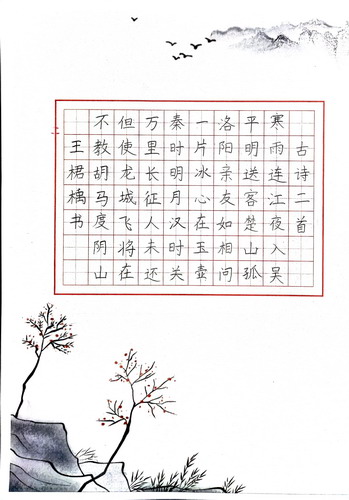 古诗二首
寒雨连江夜入吴
平明送客楚山孤
洛阳亲友如相问
一片冰心在玉壶
秦时明月汉时关
万里长征人未还
但使龙城飞将在
不教胡马度阴山
王桾楀书